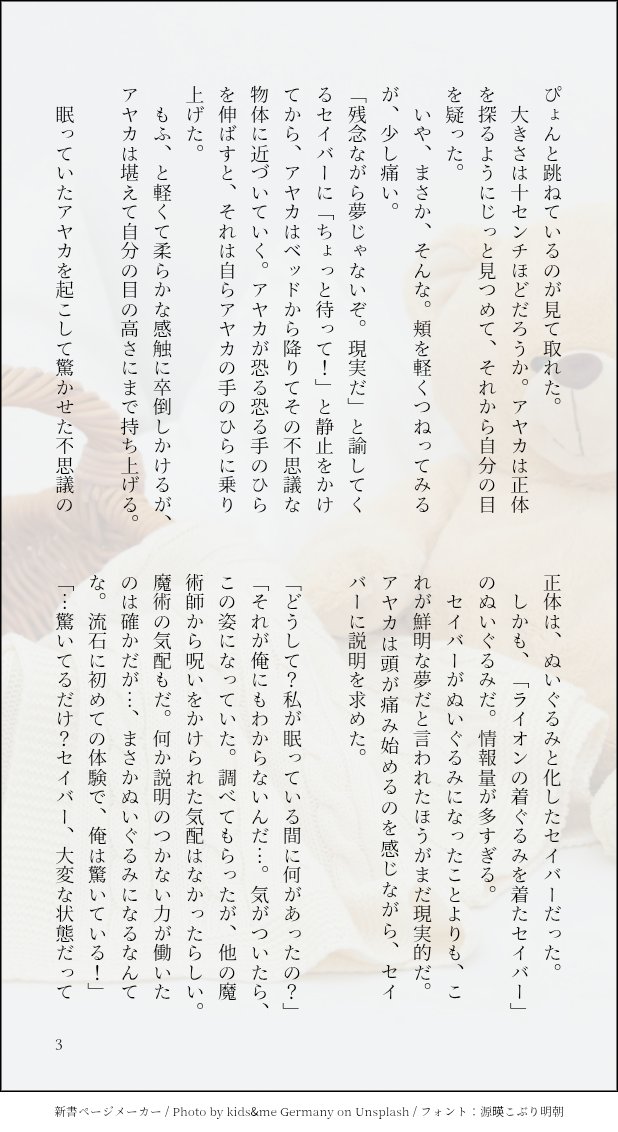 ぴょんと跳ねているのが見て取れた。
　大きさは十センチほどだろうか。アヤカは正体
を探るようにじっと見つめて、それから自分の目
を疑った。
　いや、まさか、そんな。頬を軽くつねってみる
が、少し痛い。
「残念ながら夢じゃないぞ。現実だ」と諭してく
るセイバーに「ちょっと待って！」と静止をかけ
てから、アヤカはベッドから降りてその不思議な
物体に近づいていく。アヤカが恐る恐る手のひら
を伸ばすと、それは自らアヤカの手のひらに乗り
上げた。
　もふ、と軽くて柔らかな感触に卒倒しかけるが、
アヤカは堪えて自分の目の高さにまで持ち上げる。
　眠っていたアヤカを起こして驚かせた不思議の
正体は、ぬいぐるみと化したセイバーだった。
　しかも、「ライオンの着ぐるみを着たセイバー」
のぬいぐるみだ。情報量が多すぎる。
　セイバーがぬいぐるみになったことよりも、こ
れが鮮明な夢だと言われたほうがまだ現実的だ。
アヤカは頭が痛み始めるのを感じながら、セイ
バーに説明を求めた。
「どうして？私が眠っている間に何があったの？」
「それが俺にもわからないんだ…。気がついたら、
この姿になっていた。調べてもらったが、他の魔
術師から呪いをかけられた気配はなかったらしい。
魔術の気配もだ。何か説明のつかない力が働いた
のは確かだが…、まさかぬいぐるみになるなんて
な。流石に初めての体験で、俺は驚いている！」
「…驚いてるだけ？セイバー、大変な状態だって
3
新書ページメーカー / Photo by kids&me Germany on Unsplash / フォント：源暎こぶり明朝